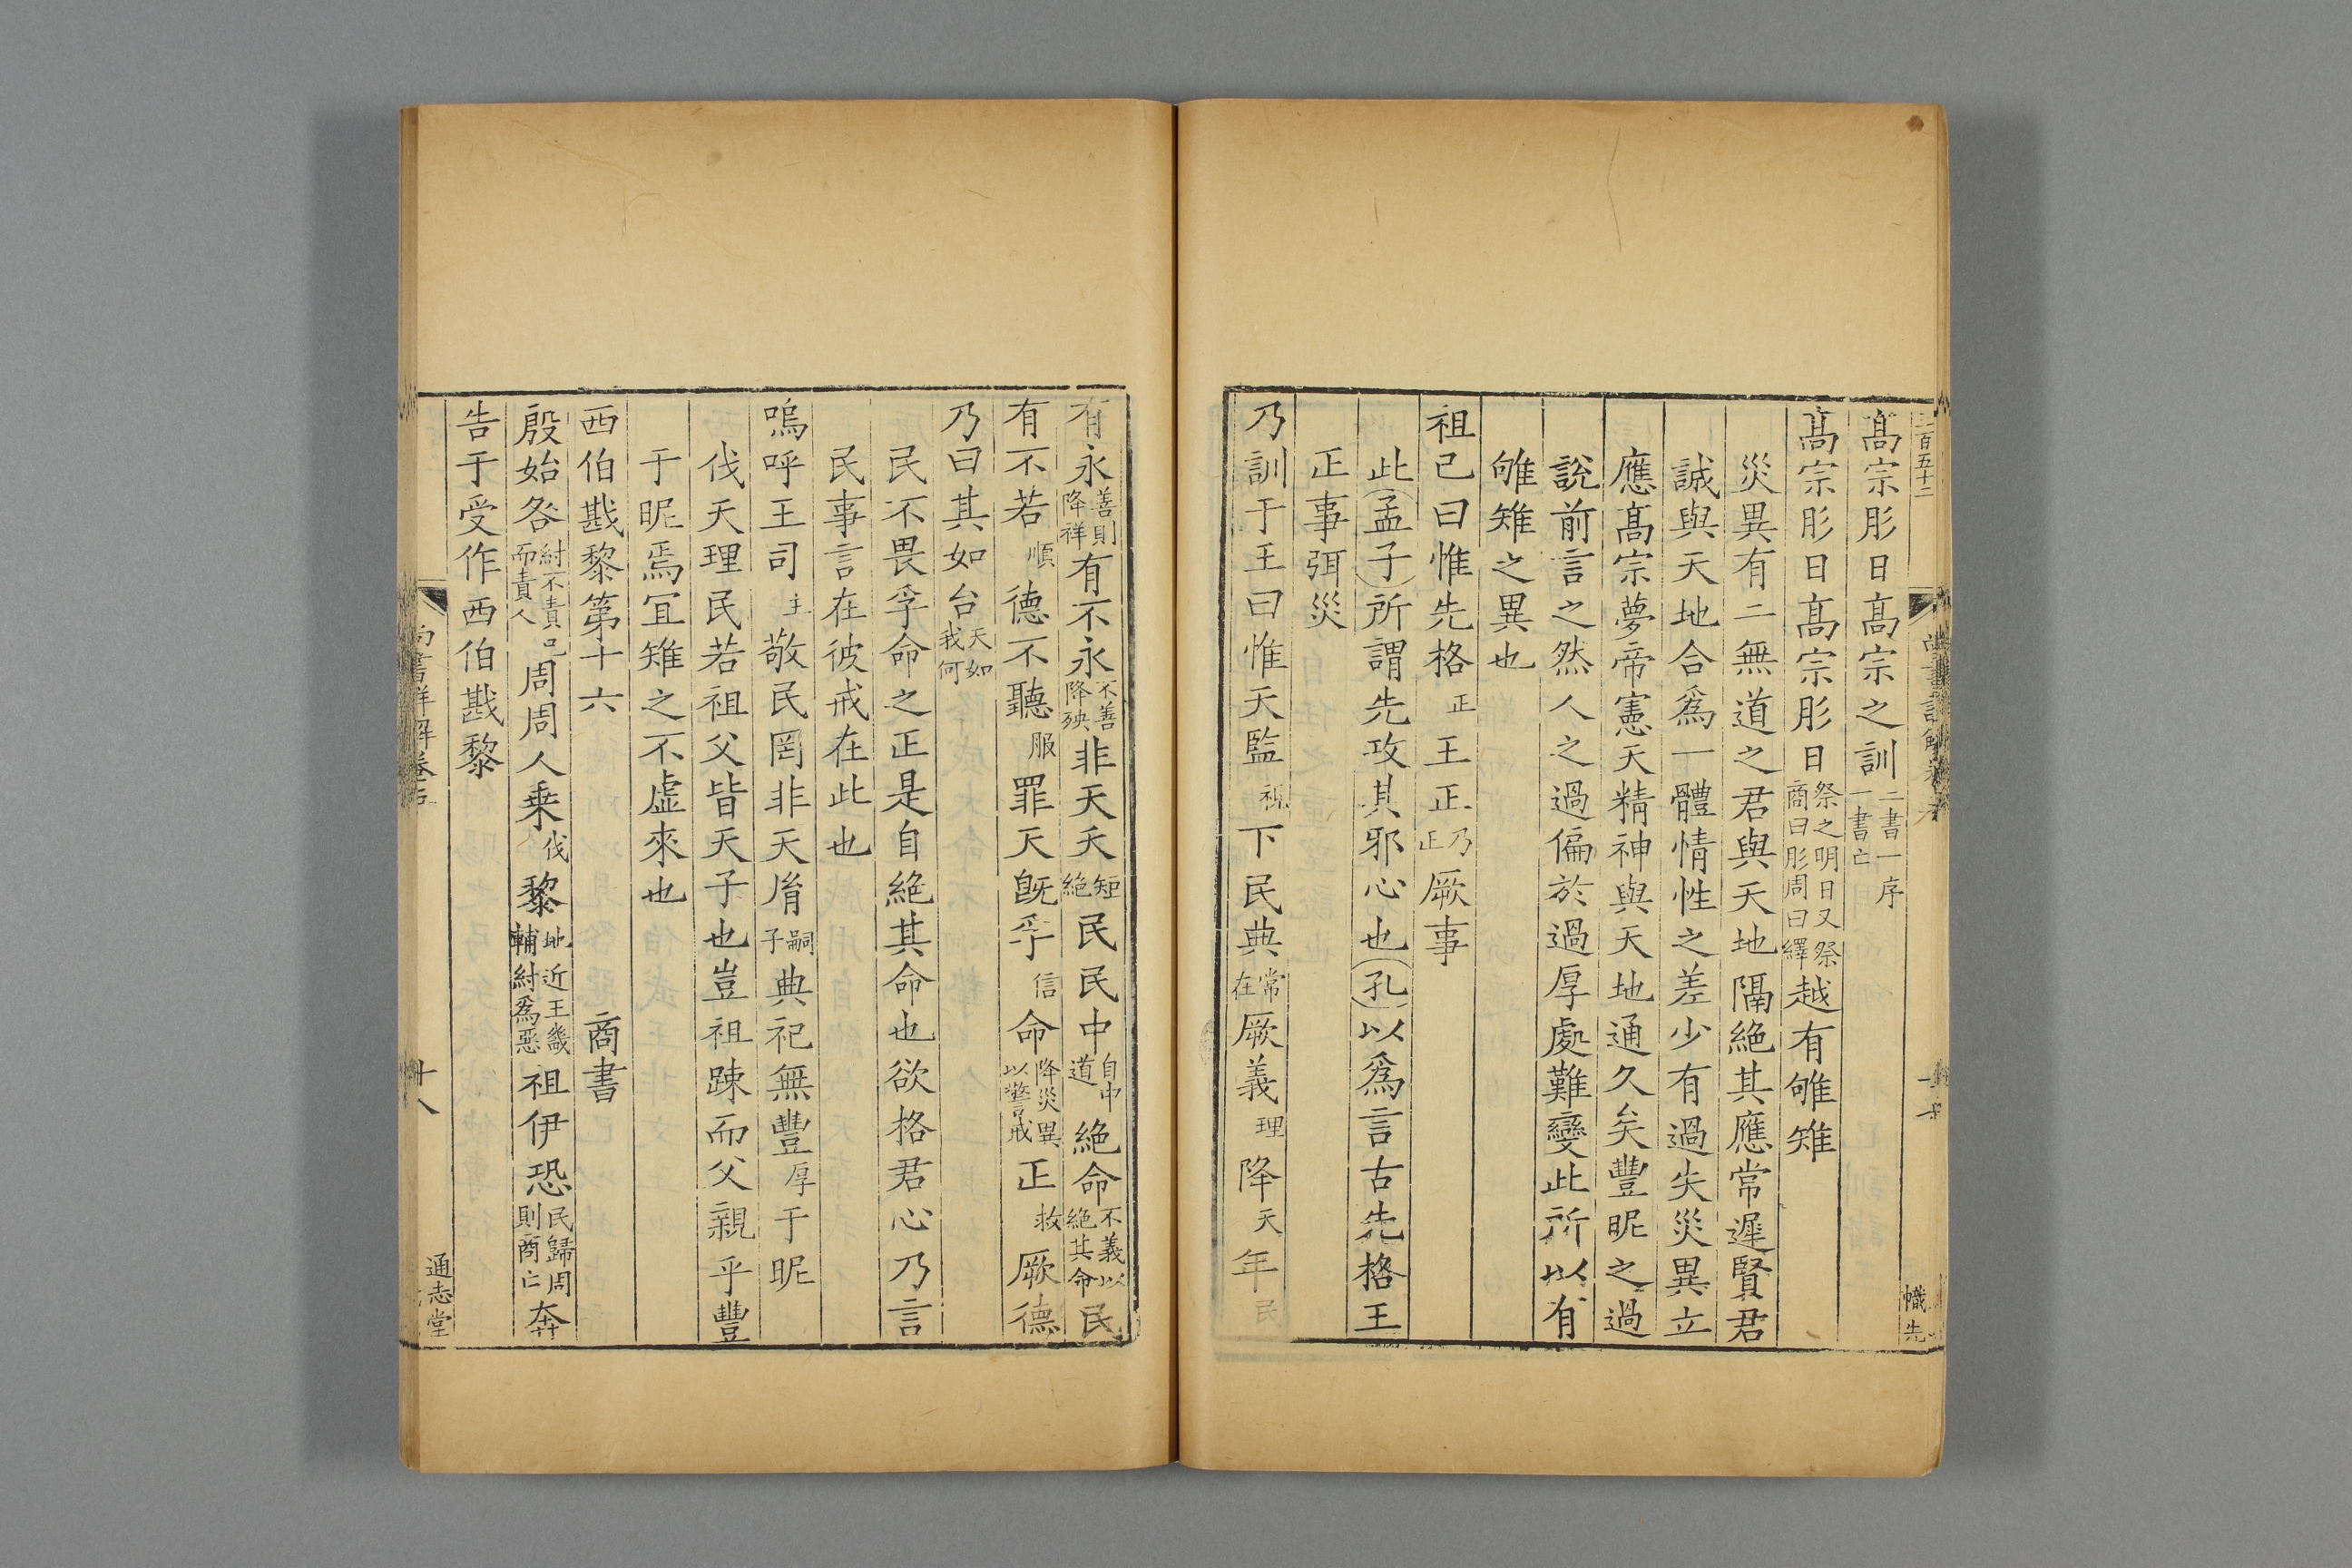 二百五十二
髙宗肜日髙宗之訓二書一序一書亡
髙宗肜日祭之明日又祭商曰肜周曰繹越有雊雉
災異有二無道之君與天地隔絕其應常遲賢君
誠與天地合爲一體情性之差少有過失災異立
應髙宗夢帝憲天精神與天地通久矣豐昵之過
說前言之然人之過偏於過厚處難變此所以有
雊雉之異也
祖己曰惟先格正王正乃正厥事
此孟子所謂先攻其邪心也孔以爲言古先格王
正事弭災
乃訓于王曰惟天監視下民典常在厥義理降天年民
有永善則降祥有不永不善降殃非天夭短絕民民中自中道絕命不義以絕其命民
有不若順德不聽服罪天旣孚信命降災異以警戒正救厥德
乃曰其如台天如我何
民不畏孚命之正是自絕其命也欲格君心乃言
民事言在彼戒在此也
嗚呼王司主敬民罔非天胤嗣子典祀無豐厚于昵
伐天理民若祖父皆天子也豈祖踈而父親乎豐
于昵焉冝雉之不虛來也
西伯戡黎第十六 商書
殷始咎紂不責己而責人周周人乗伐黎地近王畿輔紂爲惡祖伊恐民歸周則商亡奔
告于受作西伯戡黎
尚書詳解卷
十八
通志堂